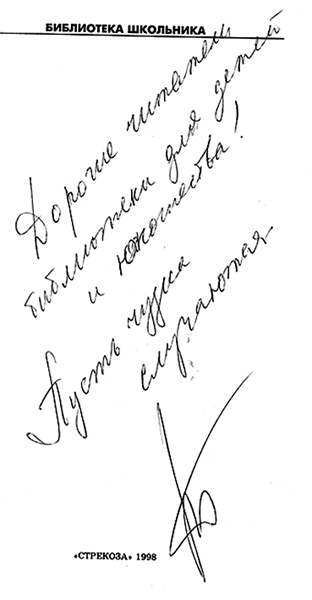 БИБЛИОТЕКА ШКОЛЬНИКА
Дорогие читатели
библиотеки для детей
и юношества!
Пусть чудеса
случаются
«СТРЕКОЗА» 1998